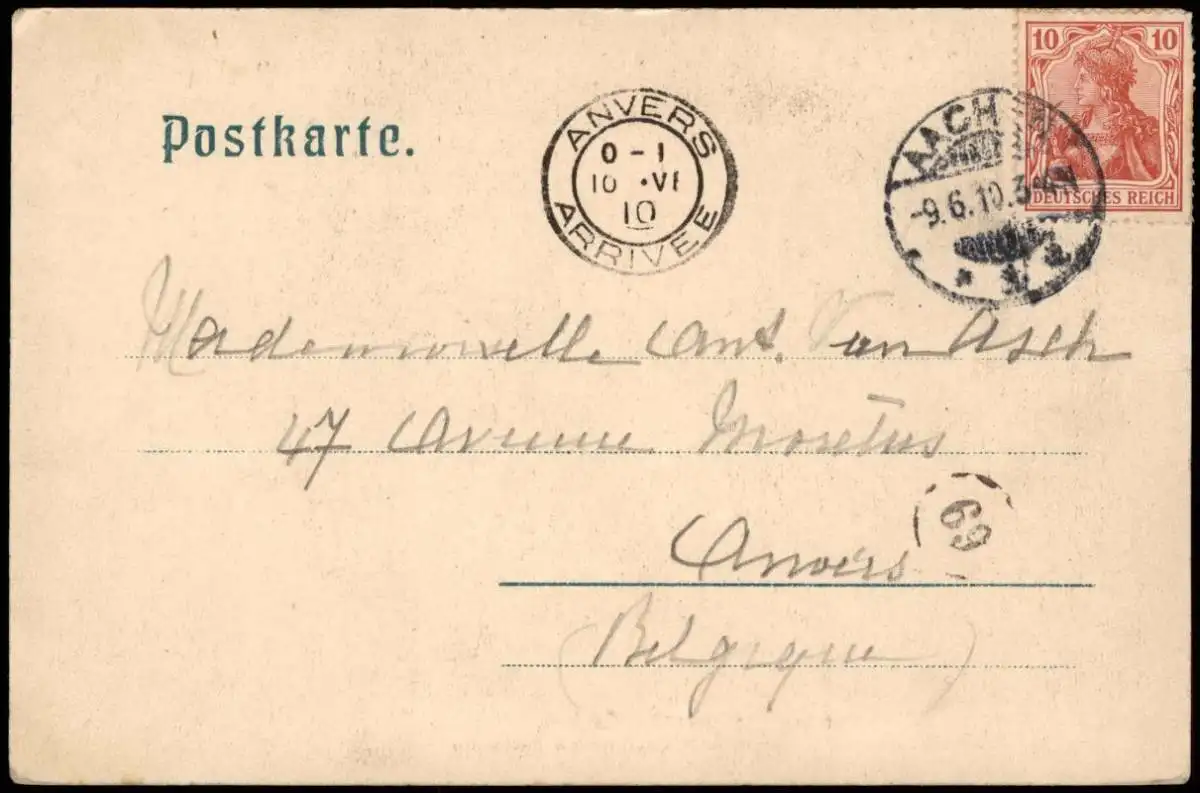 10 10
DEUTSCHES REICH
Postkarte.
ANVERS
0-1
10 ·VI
10
ARRIVEE
AACHEN
-9.6.10.
Mademoiselle Ant. Van Asch
47 Avenue Moretus
69
Anvers
(Belgique)